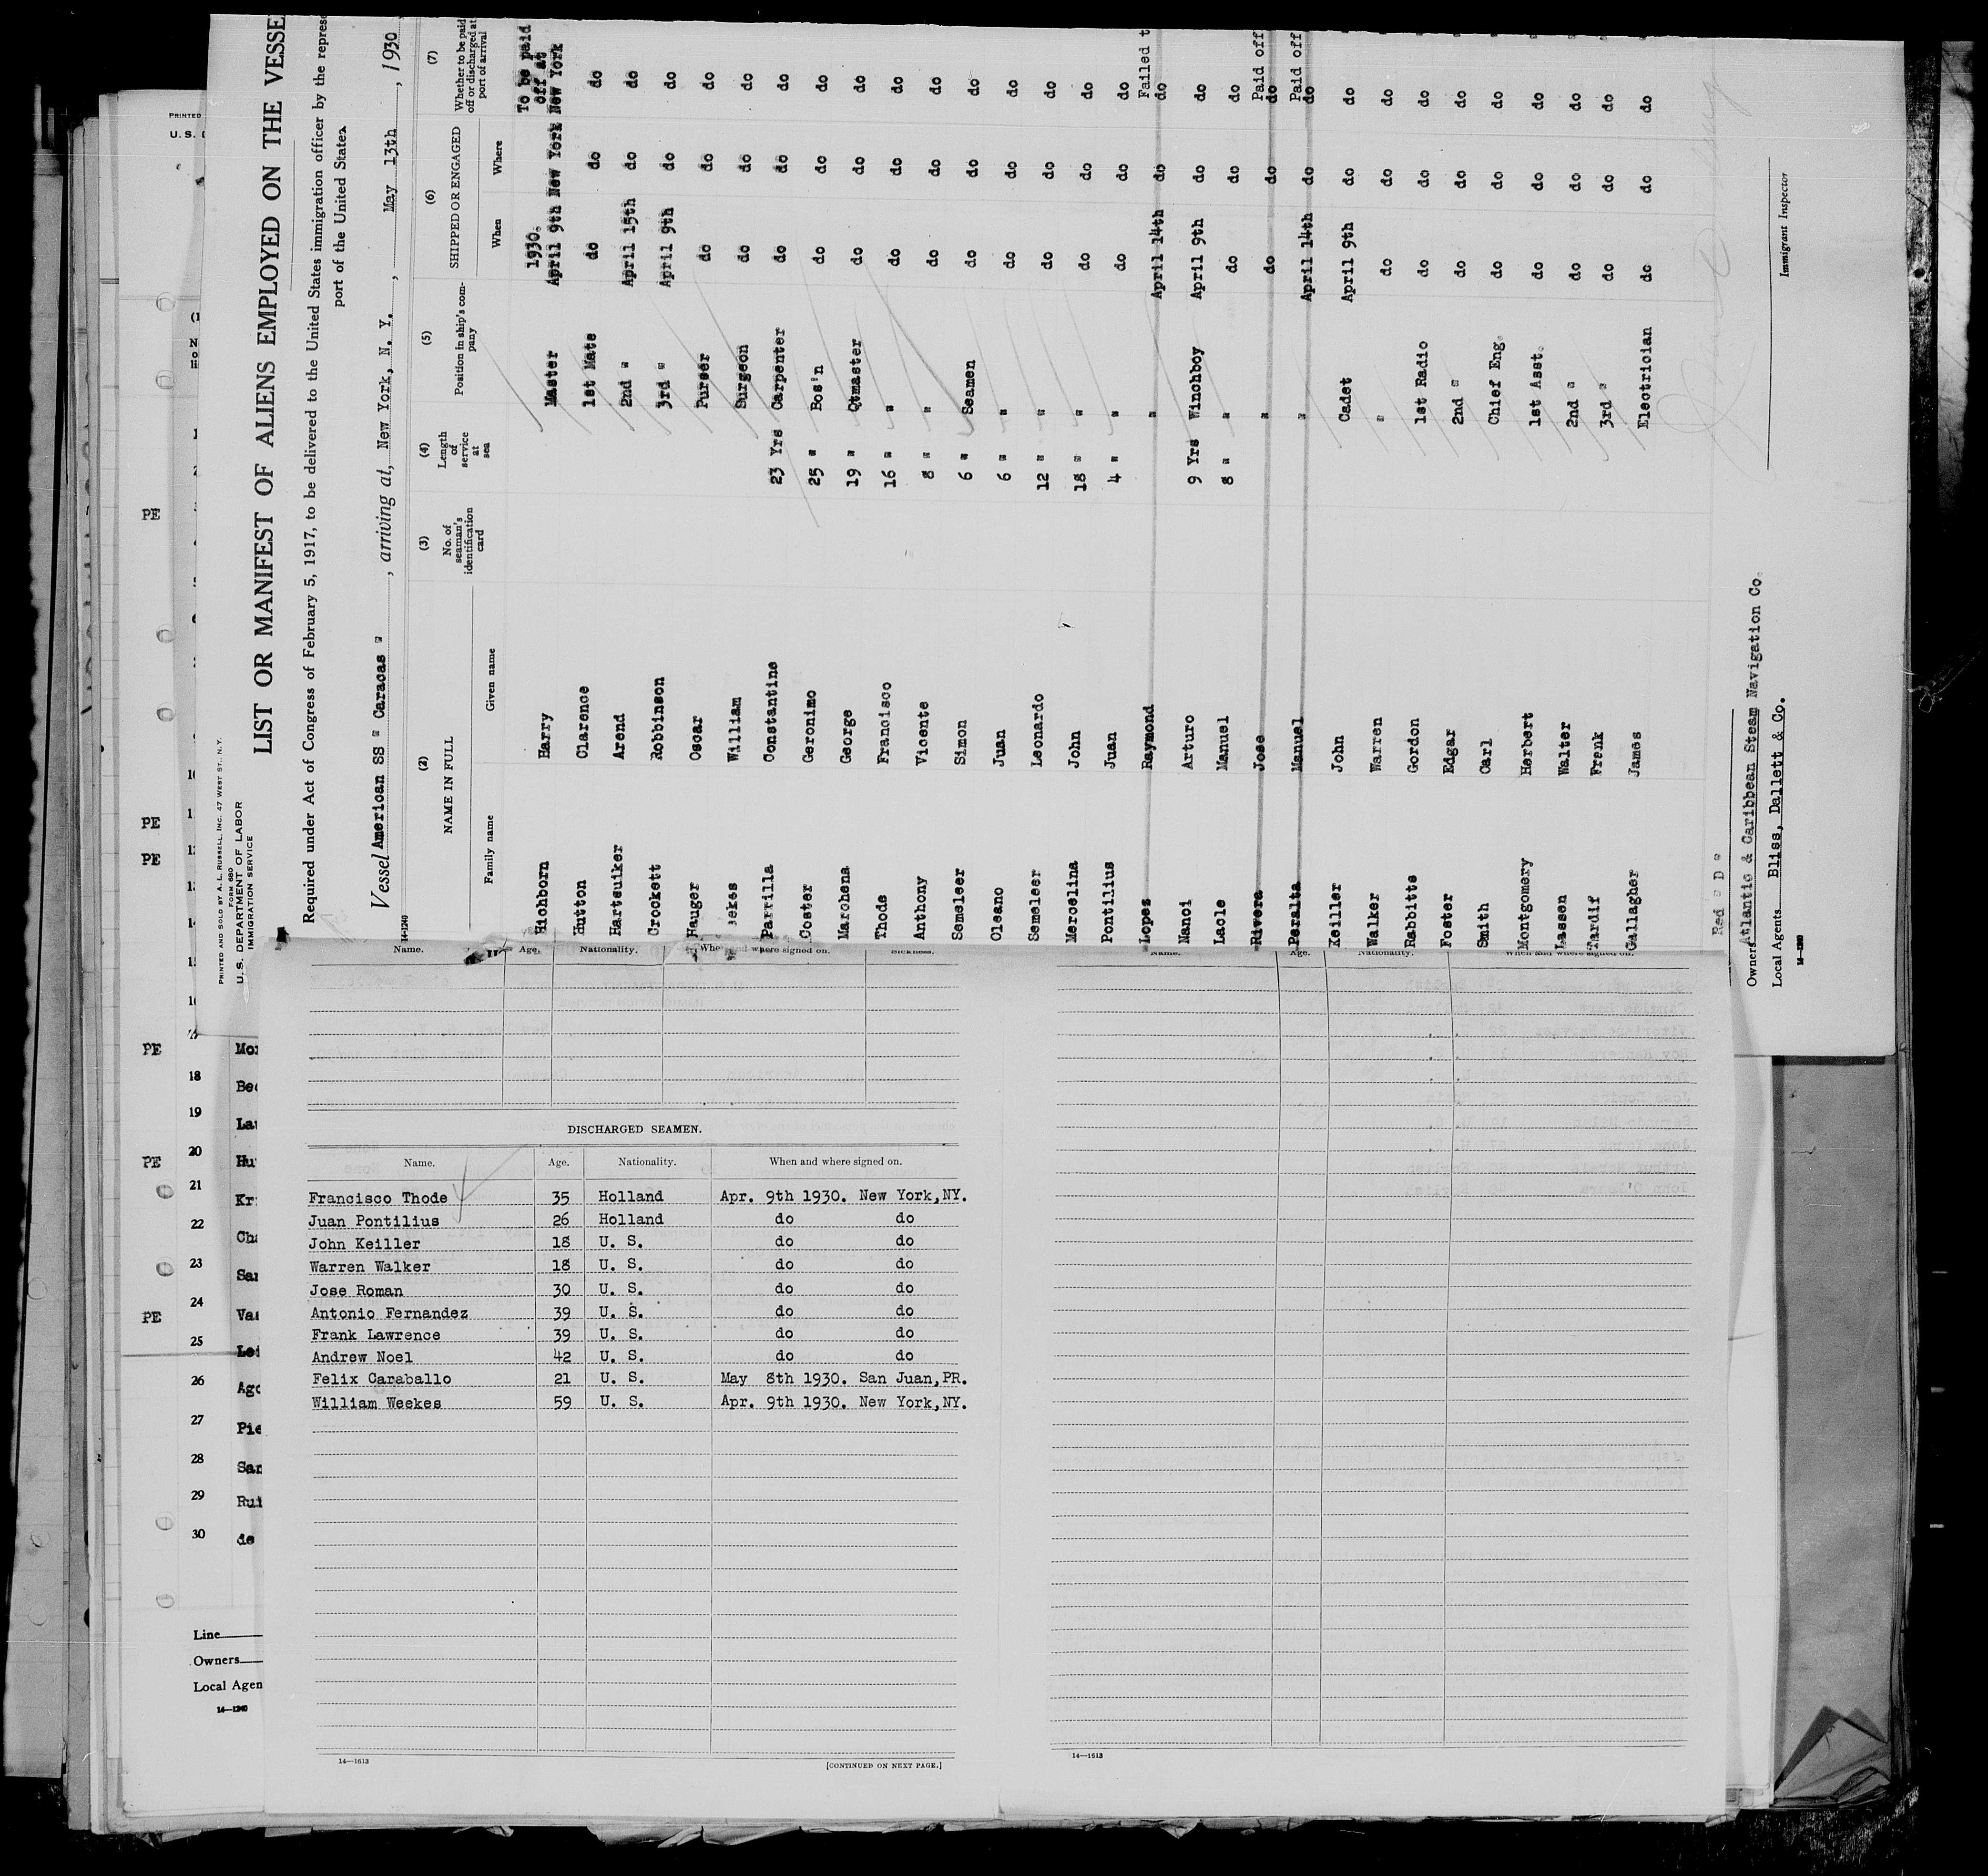 LIST OR MANIFEST OF ALIENS EMPLOYED ON THE VESSE
Required under Act of Congress of February 5, 1917, to be delivered to the United States immigration officer by the represe
port of the United States
PRINTED AND SOLD BY A. L. RUSSELL, INC. 47 WEST ST., N. Y.
FORM 680
U. S. DEPARTMENT OF LABOR
IMMIGRATION SERVICE
Vessel American SS " Caracas ", arriving at, New York, N. Y., May 13th, 1930
14-1240
(2) (3) (4) (5) (6) (7)
NAME IN FULL No. of seaman's identification card Length of service at sea Position in ship's company SHIPPED OR ENGAGED Whether to be paid off or discharged at port of arrival
Family name Given name When Where
1930. To be paid off at
Hichborn Harry Master April 9th New York New York
Hutton Clarence 1st Mate do do do
Hartsuiker Arend 2nd " April 15th do do
Crockett Robbinson 3rd " April 9th do do
Hauger Oscar Purser do do do
ekes William Surgeon do do do
Parrilla Constantine 23 Yrs Carpenter do do do
Coster Geronimo 25 " Bos'n do do do
Marchena George 19 " Qtmaster do do do
Thode Francisco 16 " " do do do
Anthony Vicente 8 " " do do do
Semeleer Simon 6 " Seamen do do do
Oleano Juan 6 " " do do do
Semeleer Leonardo 12 " " do do do
Mercelina John 18 " " do do do
Pontilius Juan 4 " " do do do
Lopez Raymond " April 14th do do Failed t
Nanoi Arturo 9 Yrs Winchboy April 9th do do
Lacle Manuel 8 " " do do do
Rivera Jose " do do do Paid off
Peralta Manuel " April 14th do do Paid off
Keiller John Cadet April 9th do do
Walker Warren " do do do
Rabbitts Gordon 1st Radio do do do
Foster Edgar 2nd " do do do
Smith Carl Chief Eng. do do do
Montgomery Herbert 1st Asst. do do do
Lassen Walter 2nd " do do do
Tardif Frenk 3rd " do do do
Gallagher James Electrician do do do
Red " D "
Owners Atlantic & Caribbean Steam Navigation Co.
Local Agents Bliss, Dallett & Co.
14-1240
Immigrant Inspector
PRINTED
U. S.
PE
PE
PE
PE
PE
PE
18 Bec
19 Lau
20 Hu
21 Kr
22 Cha
23 San
24 Vas
25 Lei
26 Ago
27 Pie
28 San
29 Rui
30 de
Line
Owners
Local Agen
14—1240
Name. Age. Nationality. When and where signed on. Sickness.
Name. Age. Nationality. When and where signed on.
DISCHARGED SEAMEN.
Name. Age. Nationality. When and where signed on.
Francisco Thode 35 Holland Apr. 9th 1930. New York,NY.
Juan Pontilius 26 Holland do do
John Keiller 18 U. S. do do
Warren Walker 18 U. S. do do
Jose Roman 30 U. S. do do
Antonio Fernandez 39 U. S. do do
Frank Lawrence 39 U. S. do do
Andrew Noel 42 U. S. do do
Felix Caraballo 21 U. S. May 8th 1930. San Juan,PR.
William Weekes 59 U. S. Apr. 9th 1930. New York,NY.
14—1613
[CONTINUED ON NEXT PAGE.]
14—1613